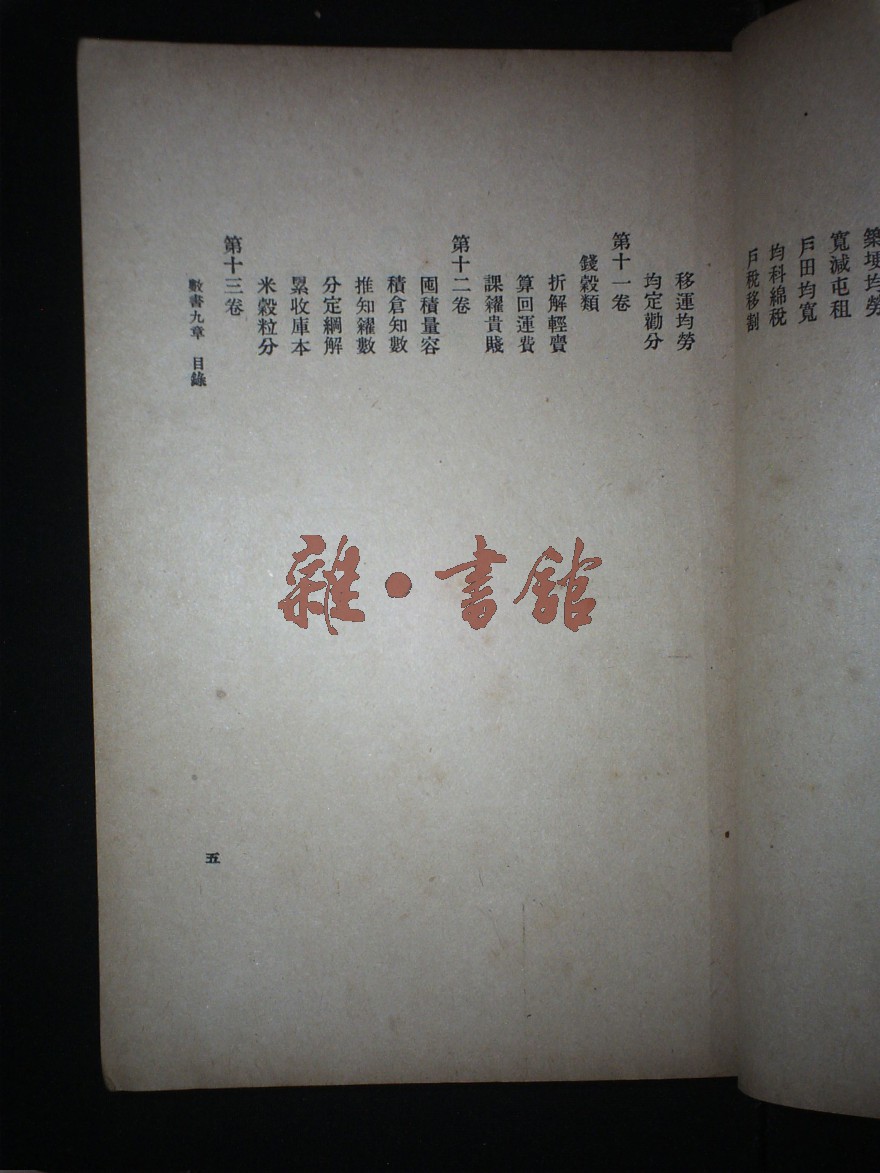 築埂均勞
寬減屯租
戶田均寬
均科綿稅
戶稅移割
移運均勞
均定勸分
第十一卷
錢穀類
折解輕賷
算回運費
課糴貴賤
第十二卷
囤積量容
積倉知數
推知糴數
分定綱解
累收庫本
米穀粒分
第十三卷
數書九章 目錄
五
雜·書館